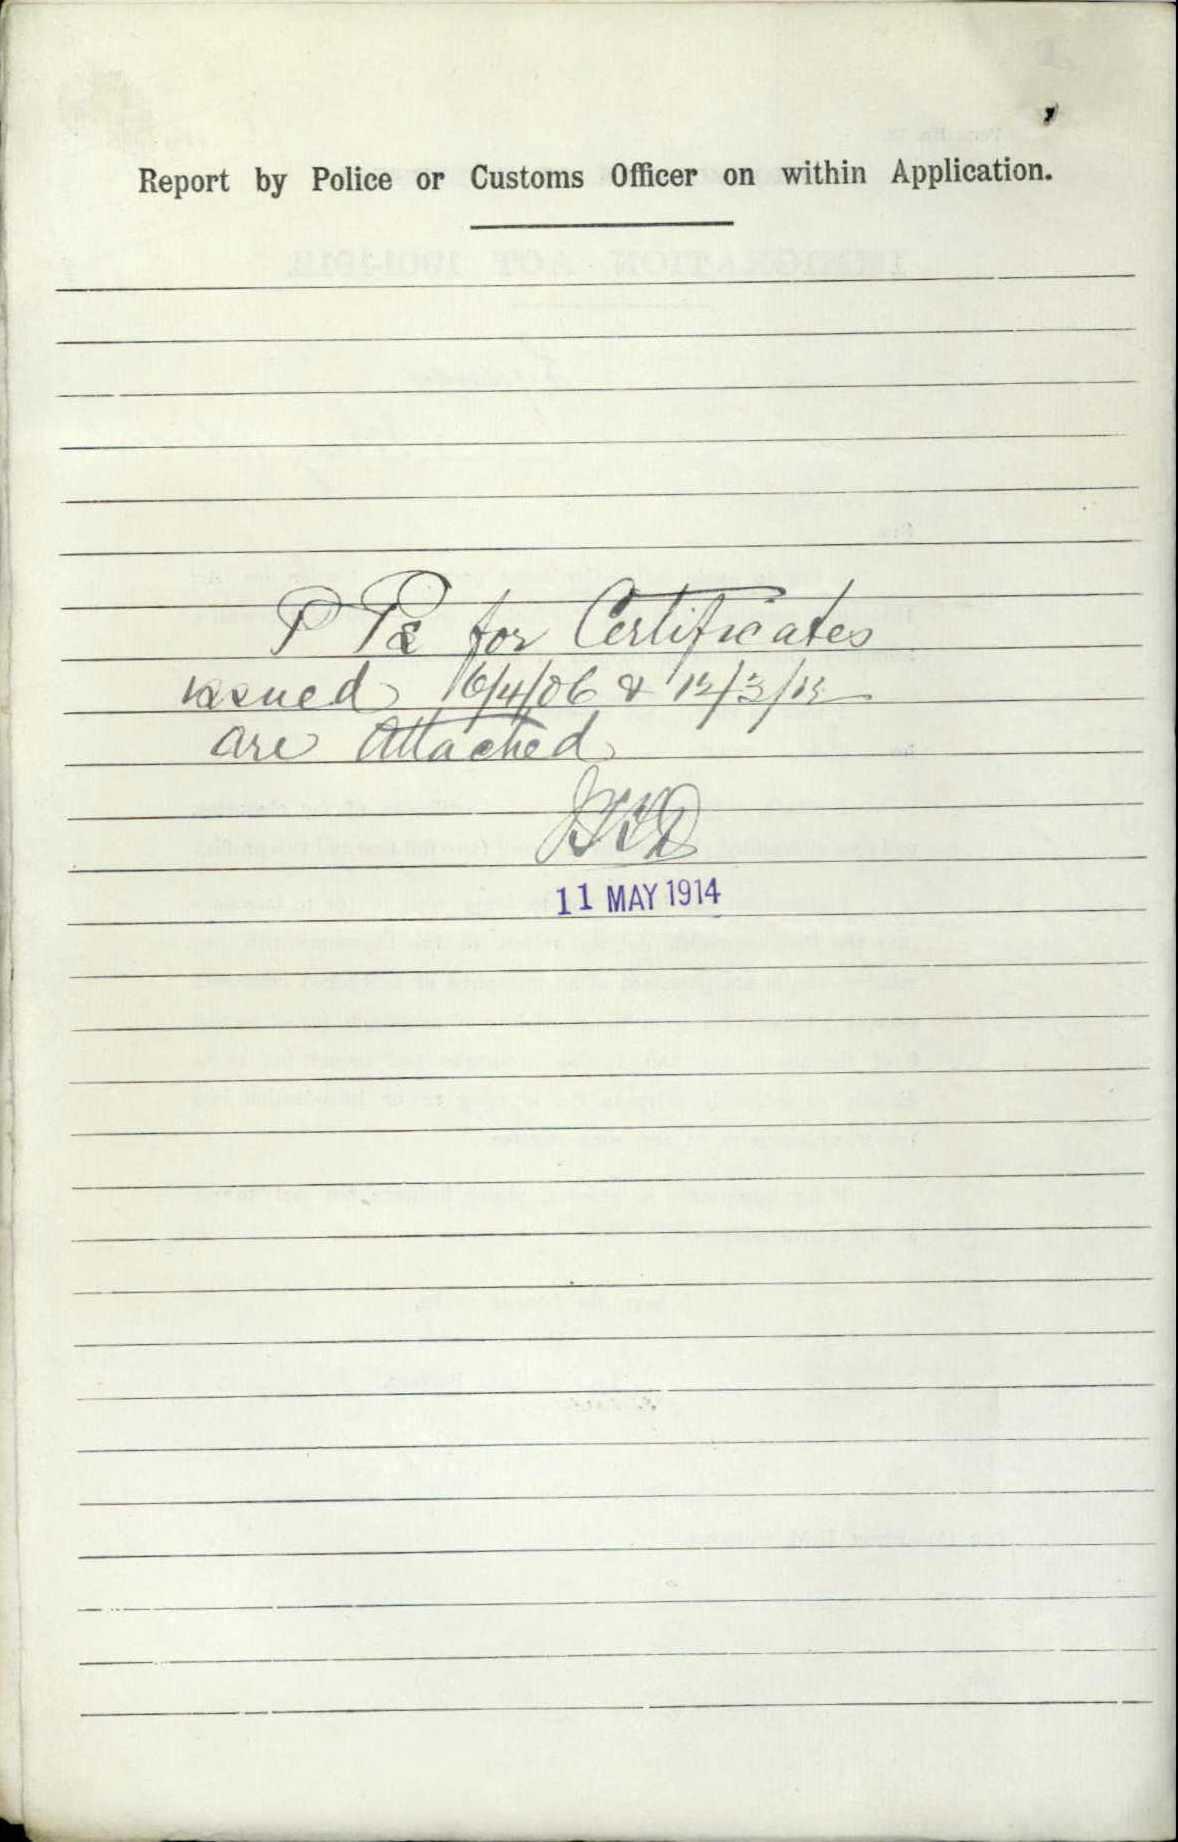 Report by Police or Customs Officer on within Application.
P Ps for Certificates
issued 16/4/06 & 12/3/12
are Attached
11 MAY 1914